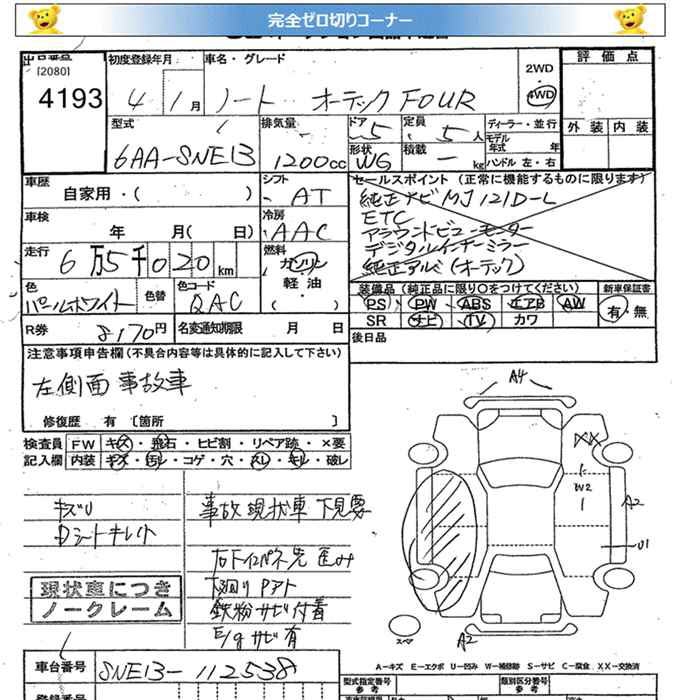 完全ゼロ切りコーナー
出品番号 初度登録年月 車名・グレード 2WD 評価点
[2080] 4WD
4193 4 1月 ノート オーテックFOUR
型式 排気量 ドア 5 定員 5人 ディーラー・並行 外装 内装
6AA-SNE13 1200cc 形状 WG 積載 - kg モデル年式 年 ハンドル 左・右
車歴 シフト セールスポイント (正常に機能するものに限ります)
自家用・( ) AT 純正ナビ MJ121D-L
車検 冷房 ETC
年 月( 日) AAC アラウンドビューモニター
走行 燃料 デジタルインナーミラー
6万5千020km ガソリン 純正アルミ(オーテック)
軽油
色 色替 色コード ・( ) 装備品 (純正品に限り○をつけてください) 新車保証書
パールホワイト QAC PS PW ABS エアB AW 有・無
R券 8170円 名変通知期限 月 日 SR ナビ TV カワ
注意事項申告欄(不具合内容等は具体的に記入して下さい) 後日品
左側面 事故車
修復歴 有 [箇所 ]
A4
検査員 FW キズ・飛石・ヒビ割・リペア跡・×要
記入欄 内装 キズ・汚レ・コゲ・穴・スレ・モレ・破レ
XX
W2
A2
U1
キズU 事故現状車 下見要
Dシートキレイト
右ドインパネ先 歪み
現状車につき 下廻りPアト
ノークレーム 鉄粉サビ付着
E/gサビ有
スペア
A2
A-キズ E-エクボ U-凹み W-補修跡 S-サビ C-腐食 XX-交換済
車台番号 SNE13-112538
登録番号 型式指定番号 参考 類別区分番号 参考